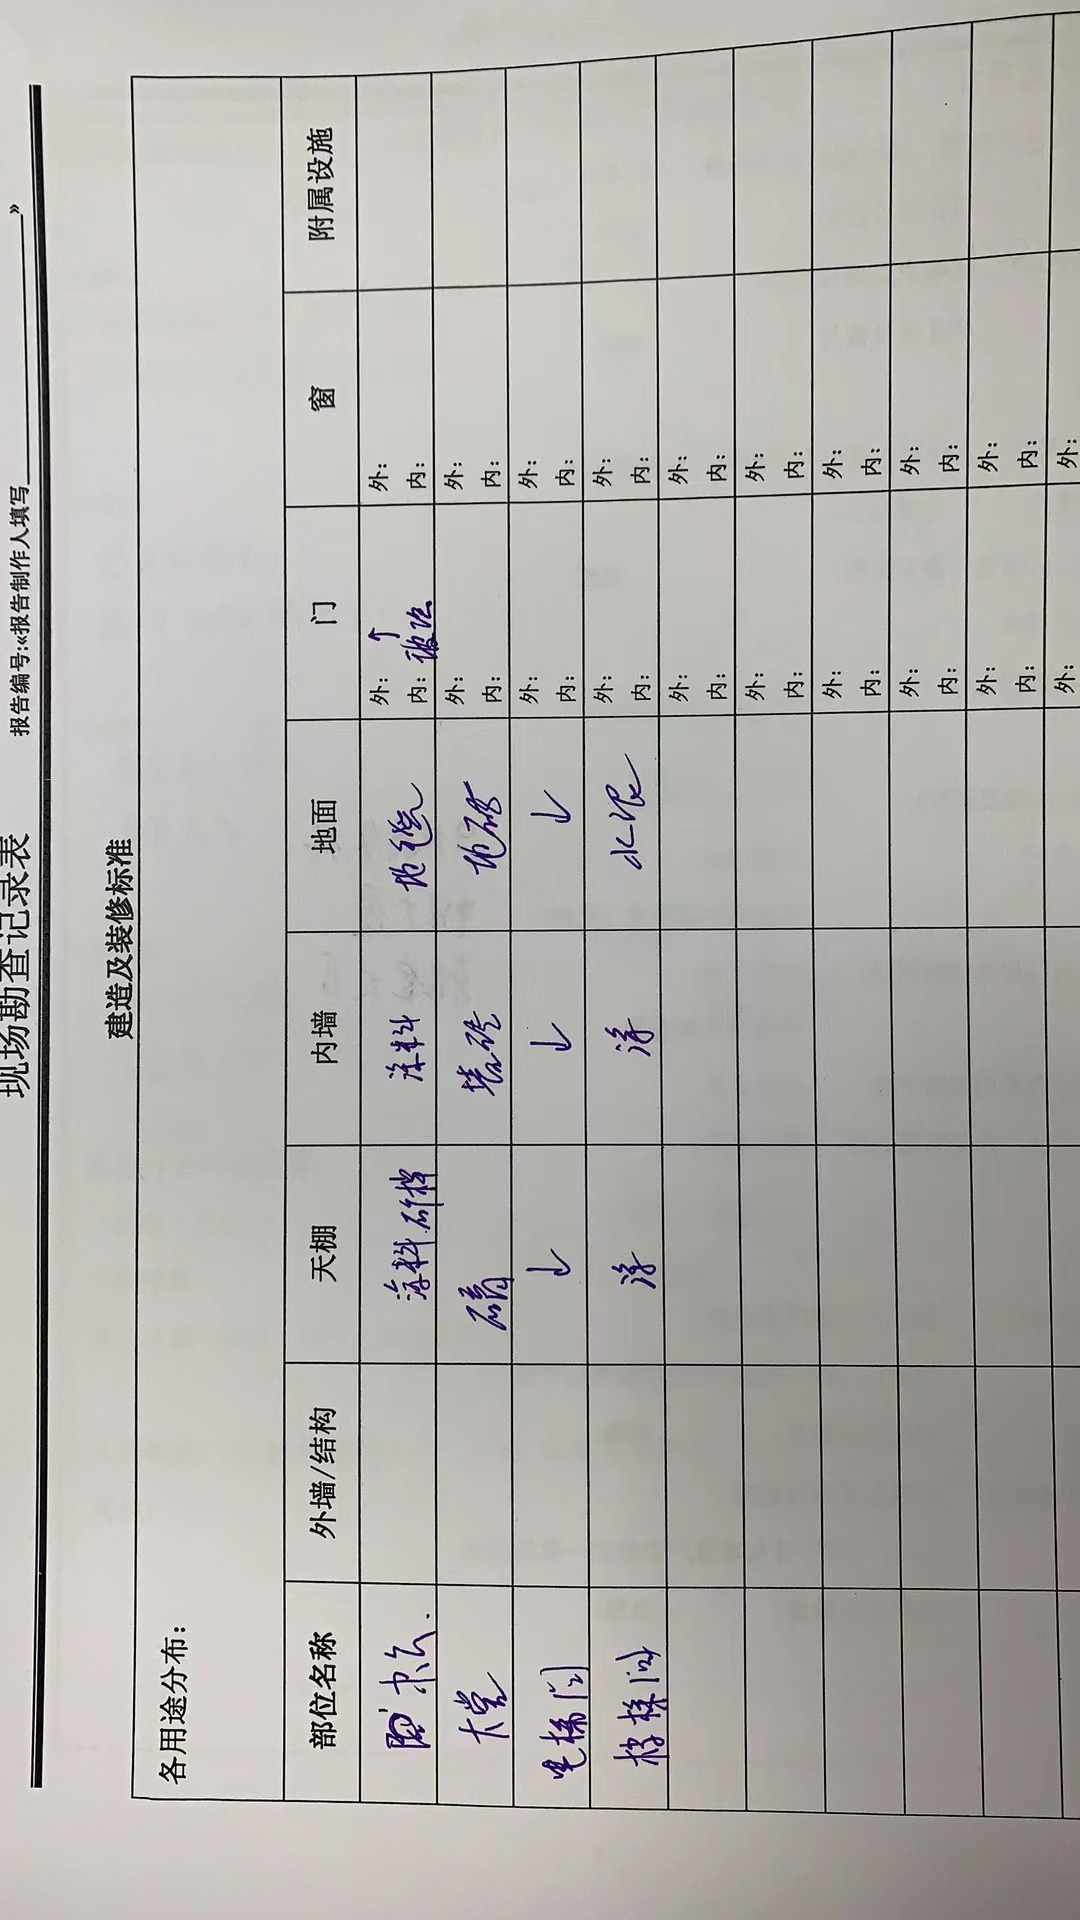 现场勘查记录表
报告编号:«报告制作人填写 »
建造及装修标准
各用途分布:
部位名称 外墙/结构 天棚 内墙 地面 门 窗 附属设施
涂料 涂料 地毯 外: ↑ 外:
内: 玻璃 内:
大堂 墙砖 地砖 外: 外:
内: 内:
电梯间 ↓ ↓ ↓ 外: 外:
内: 内:
楼梯间 涂 涂 水泥 外: 外:
内: 内:
外: 外:
内: 内:
外: 外:
内: 内:
外: 外:
内: 内:
外: 外:
内: 内:
外: 外:
内: 内:
外: 外: